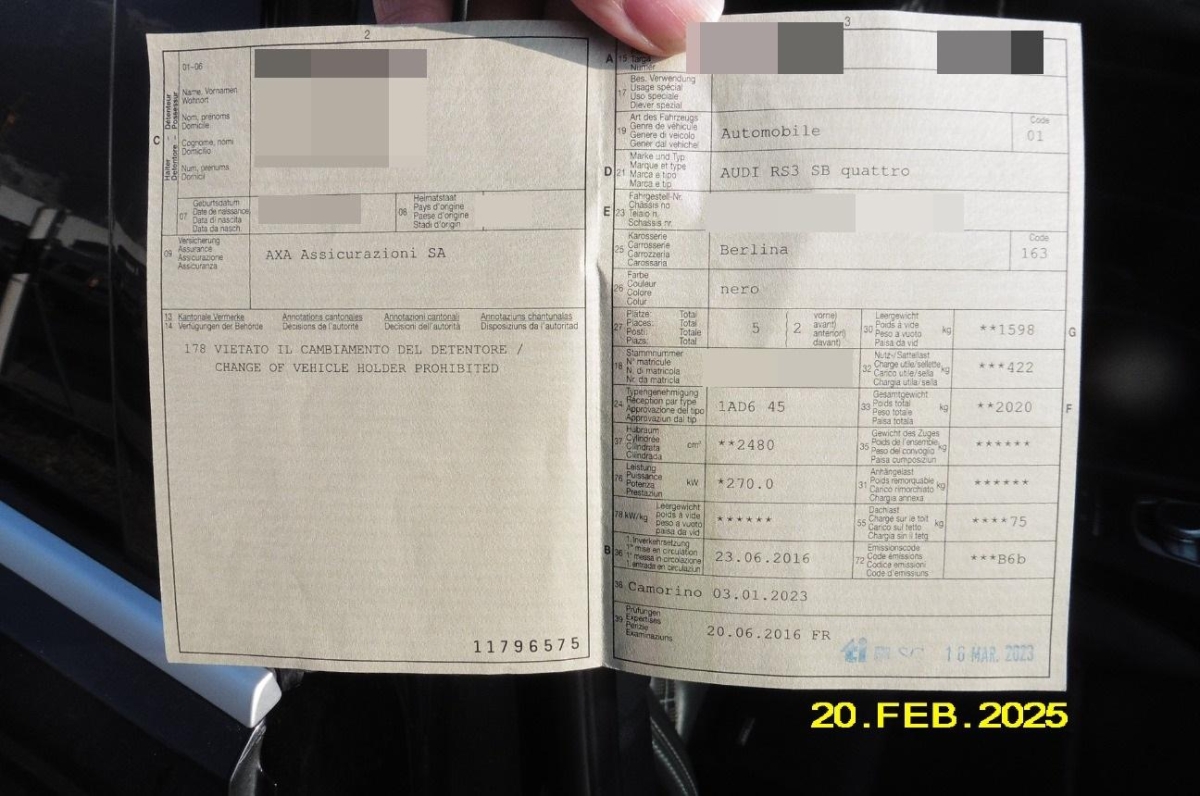 2
01-06
Name, Vornamen
Wohnort
Nom, prénoms
Domicile
Cognome, nomi
Domicilio
Num, prenums
Domicil
C
Halter - Détenteur
Detentore - Possessur
07
Geburtsdatum
Date de naissance
Data di nascita
Data da nasch.
08
Heimatstaat
Pays d'origine
Paese d'origine
Stadi d'origin
09
Versicherung
Assurance
Assicurazione
Assicuranza
AXA Assicurazioni SA
13 Kantonale Vermerke Annotations cantonales Annotazioni cantonali Annotaziuns chantunalas
14 Verfügungen der Behörde Décisions de l'autorité Decisioni dell'autorità Disposiziuns da l'autoritad
178 VIETATO IL CAMBIAMENTO DEL DETENTORE /
CHANGE OF VEHICLE HOLDER PROHIBITED
11796575
3
A 15 Targa
Numer
17
Bes. Verwendung
Usage spécial
Uso speciale
Diever spezial
19
Art des Fahrzeugs
Genre de véhicule
Genere di veicolo
Gener dal vehichel
Automobile
Code
01
D 21
Marke und Typ
Marque et type
Marca e tipo
Marca e tip
AUDI RS3 SB quattro
E 23
Fahrgestell-Nr.
Châssis no
Telaio n.
Schassis nr.
25
Karosserie
Carrosserie
Carrozzeria
Carossaria
Berlina
Code
163
26
Farbe
Couleur
Colore
Colur
nero
27
Plätze: Total
Places: Total
Posti: Totale
Plazs: Total
5
2
vorne)
avant)
anteriori)
davant)
30
Leergewicht
Poids à vide
Peso a vuoto
Paisa da vid
kg
**1598
G
18
Stammnummer
N° matricule
N. di matricola
Nr. da matricla
32
Nutz-/Sattellast
Charge utile/sellette
Carico utile/sella
Chargia utila/sella
kg
***422
24
Typengenehmigung
Réception par type
Approvazione del tipo
Approvaziun dal tip
1AD6 45
33
Gesamtgewicht
Poids total
Peso totale
Paisa totala
kg
**2020
F
37
Hubraum
Cylindrée
Cilindrata
Cilindrada
cm³
**2480
35
Gewicht des Zuges
Poids de l'ensemble
Peso del convoglio
Paisa cumposiziun
kg
******
76
Leistung
Puissance
Potenza
Prestaziun
kW
*270.0
31
Anhängelast
Poids remorquable
Carico rimorchiato
Chargia annexa
kg
******
78 kW/kg
Leergewicht
poids à vide
peso a vuoto
paisa da vid
******
55
Dachlast
Charge sur le toit
Carico sul tetto
Chargia sin il tetg
kg
****75
B 36
1. Inverkehrsetzung
1re mise en circulation
1a messa in circolazione
1. entrada en circulaziun
23.06.2016
72
Emissionscode
Code émissions
Codice emissioni
Code d'emissiuns
***B6b
38 Camorino 03.01.2023
39
Prüfungen
Expertises
Perizie
Examinaziuns
20.06.2016 FR
ti
16 MAR. 2023
20.FEB.2025